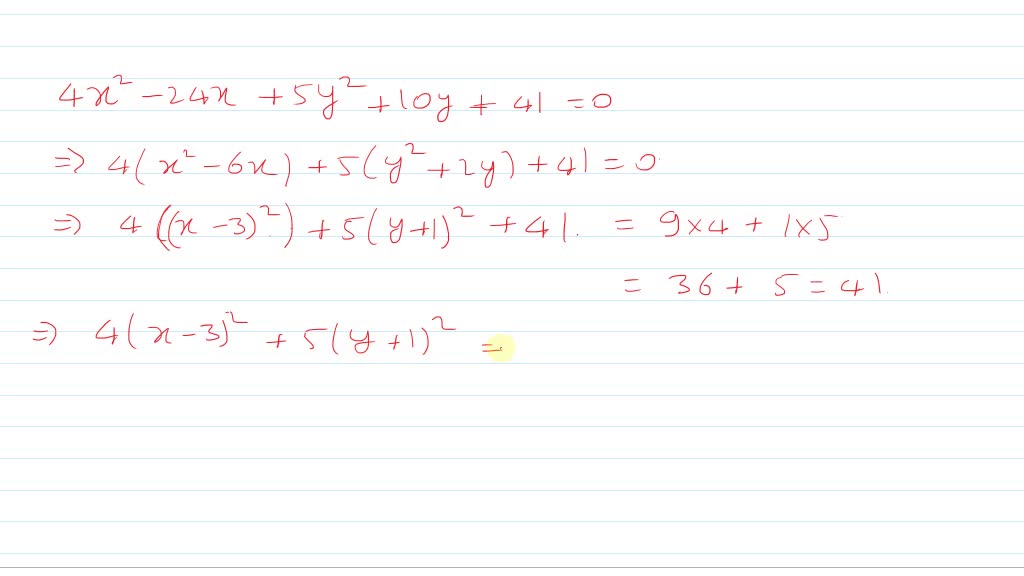 4x² - 24x + 5y² + 10y + 41 = 0
⇒ 4(x² - 6x) + 5(y² + 2y) + 41 = 0.
⇒ 4((x - 3)²) + 5(y + 1)² + 41. = 9×4 + 1×5
= 36 + 5 = 41.
⇒ 4(x - 3)² + 5(y + 1)² =